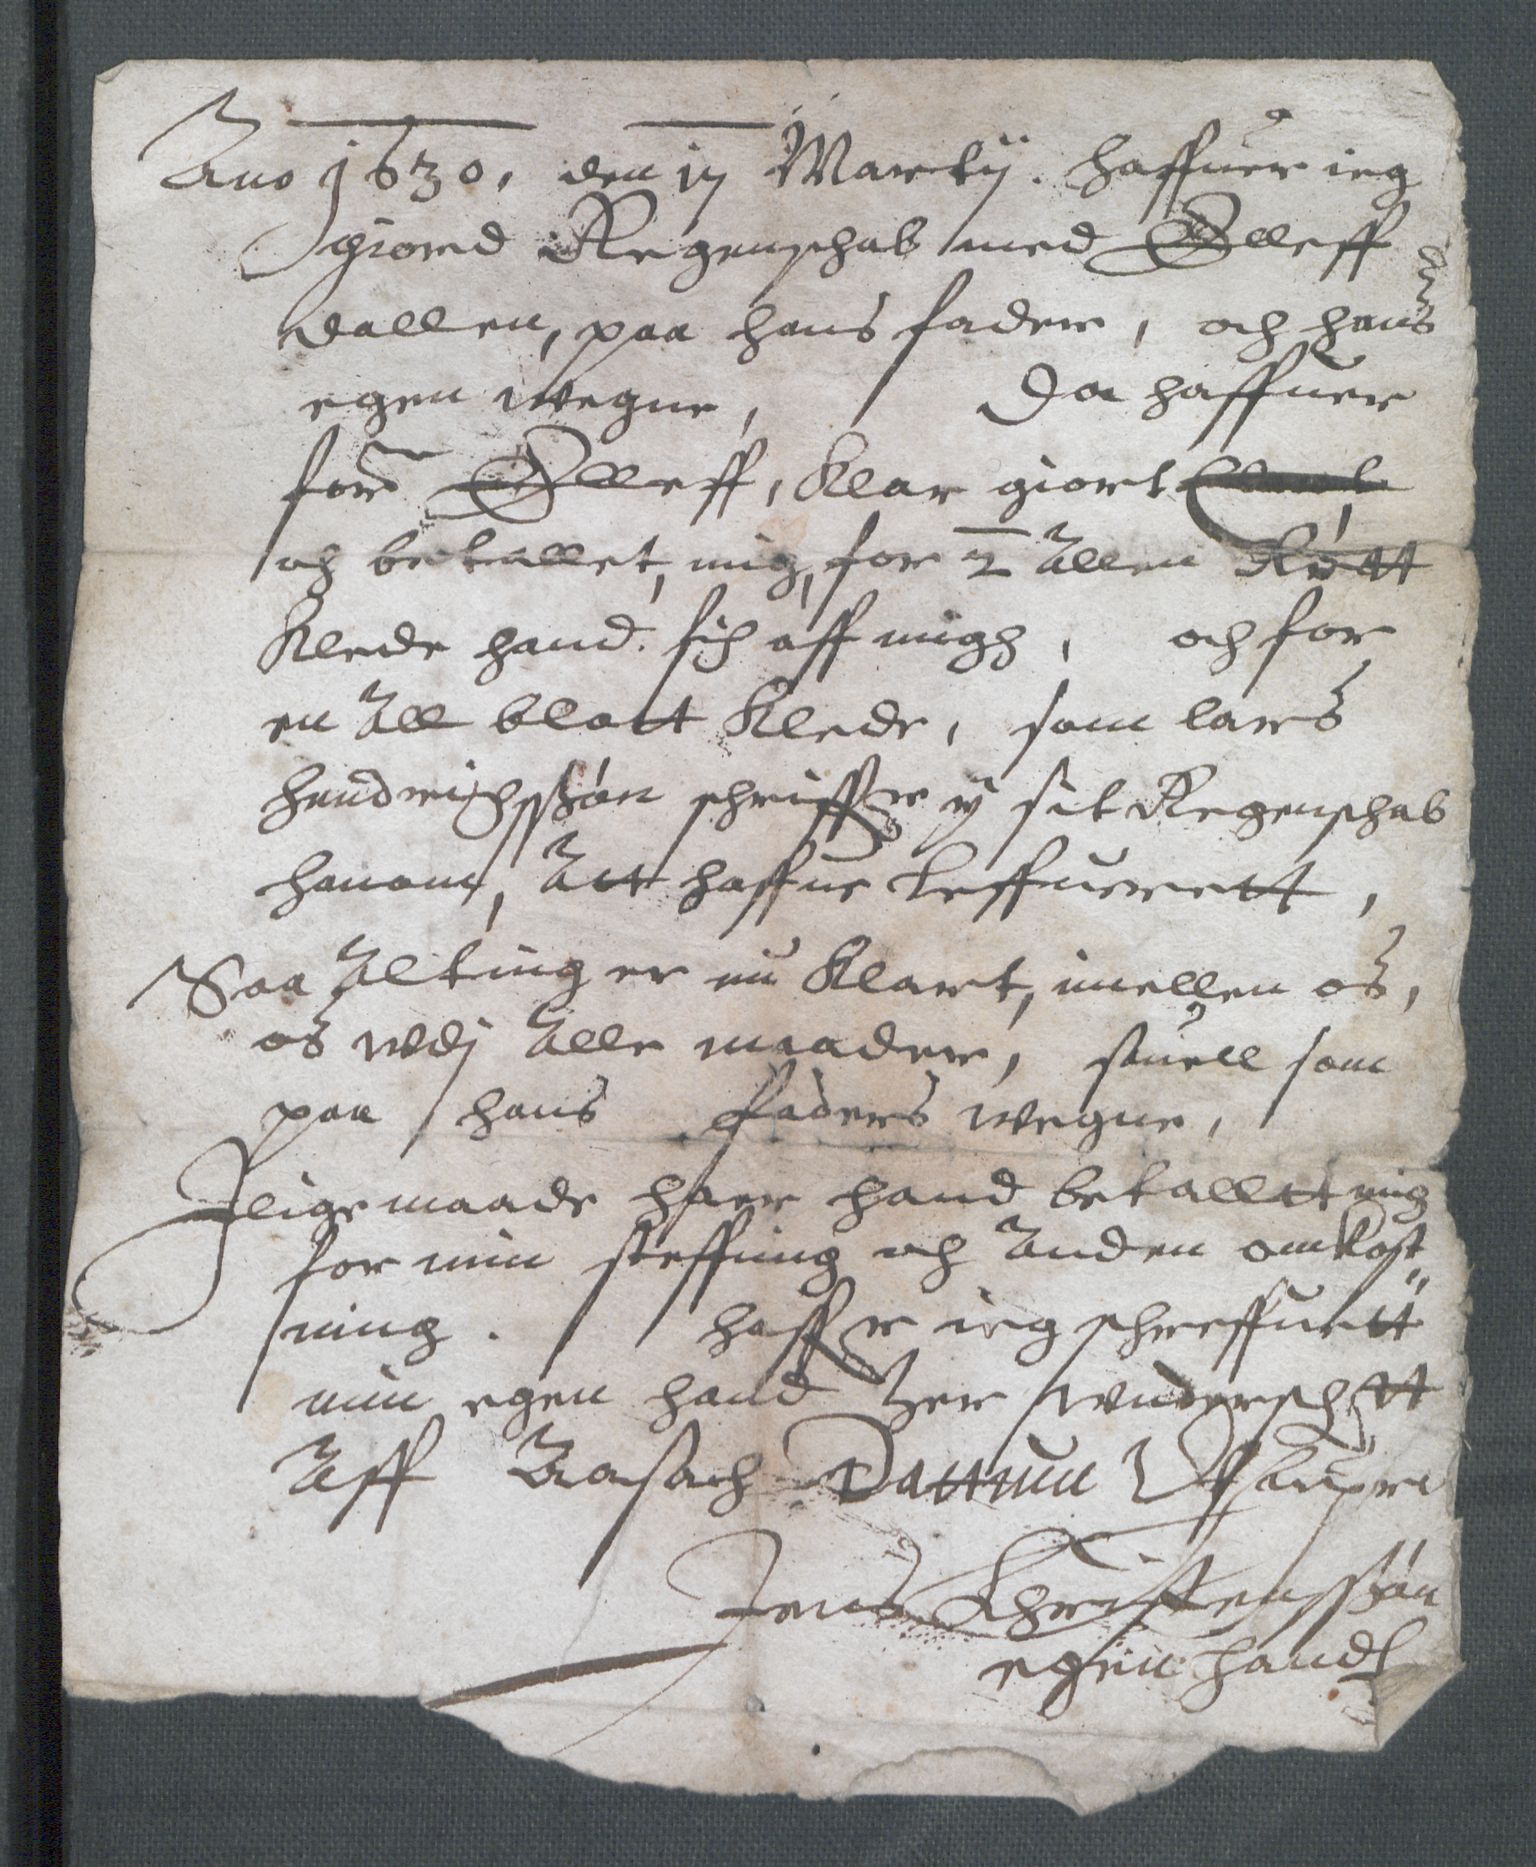 Ano 1630, den 17 Martij. haffuer ieg
giord Regenschab med Olleff
dallen, paa hans fader, och hans
egen wegne, Da haffuer
for.ne Olleff, klar giort
och betallet, mig, for 2 Allen Røtt
Klede hand. fich aff migh, och for
en All blatt Klede, som lars
hendrichssøn schriffuer y sit Regenschab
hanom, Att haffue leffuerett,
Saa Alting er nu Klart, imellen os,
os wdj Alle maader, sauell som
paa hans faders wegne,
J lige maade haer hand betallett mig
for min steffning och Anden omkost
ning. haffuer ieg schreffuett
min egen hand her wnder
Aff Aasach Dattum Vt supra
Jens Christenssøn
egen handt